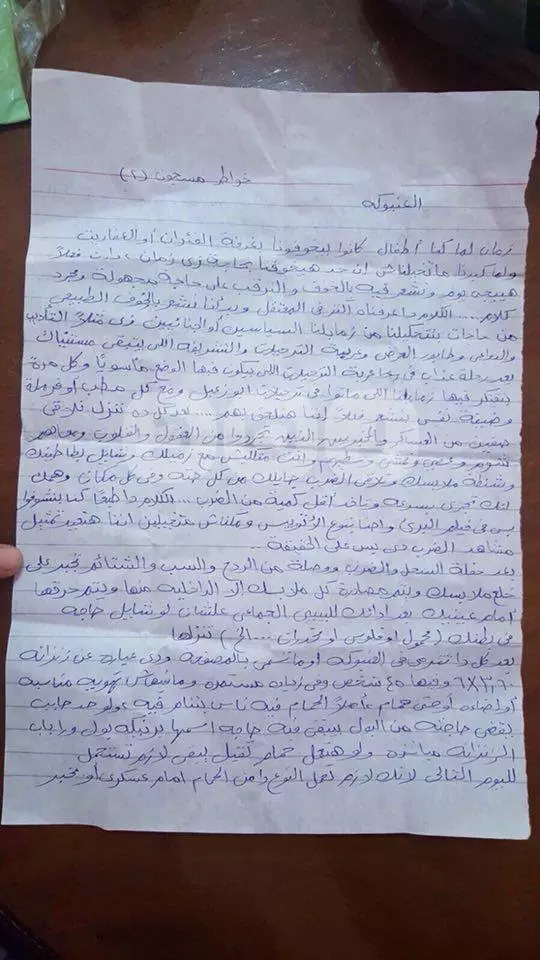 خواطر مسجون (٢)
العنبوكه
زمان لما كنا أطفال كانوا بيخوفونا بغرفة الفئران أو العفاريت
ولما كبرنا ما تخيلناش ان حد هيخوفنا بحاجة زى زمان ، وان فعلاً
هييجى يوم ونشعر فيه بالخوف والترقب على حاجة مجهولة ومجرد
كلام .... الكلام دا عرفناه أكتر فى المعتقل وبدأنا نشعر بالخوف الطبيعي
من حاجات بتتحكيلنا من زمايلنا السياسين أو الجنائيين زى مثلاً التأديب
والدواعى وطابور العرض وعربية الترحيلات والتشريفه اللى بتبقى مستنياك
بعد رحلة عذاب فى عربية الترحيلات اللى بيكون فيها الوضع مأسوياً وكل مرة
بنفتكر فيها زمايلنا اللى ماتوا فى ترحيلات ابو زعبل ومع كل مطب أو فرملة
وضيقة نفس بنشعر فعلاً إننا هنلحق بهم .... بعد كل ده تنزل تلاقى
صفين من العساكر والمخبرين الذين تجردوا من العقول والقلوب ومعاهم
شوم وعصى وتمشى وسطهم وانت متكلبش مع زميلك وشايل بطاطينك
وشنطة ملابسك وتلاقى الضرب جايلك من كل حته وفى كل مكان وهمك
انك تجرى بسرعة وتاخد أقل كمية من الضرب .... الكلام دا طبعاً كنا بنشوفه
بس فى فيلم البرئ واحنا بنوع الأتوبيس ومكناش متخيلين اننا هنعيد تمثيل
مشاهد الضرب دى بس على الحقيقة ...
بعد حفلة السحل والضرب ووصلة من الردح والسب والشتائم تجبر على
خلع ملابسك ويتم مصادرة كل ملابسك إلا الداخلية منها ويتم حرقها
أمام عينيك بعد ادائك للبيبى الجماعى علشان لو شايل حاجه
فى بطنك (محمول او فلوس او مخدرات ... الخ) تنزلها
بعد كل دا تترمى فى العنبوكه او ما تسمى بالمصفحة ودى عبارة عن زنزانه
وفيها ٤٥ شخص وفى زياده مستمره ومافيهاش تهوية مناسبه
أو إضاءه او حتى حمام ، أصلاً الحمام فيه ناس بتنام فيه ، ولو حد حابب
يقضى حاجته من البول بيبقى فيه حاجه اسمها برنيكة بول ورا باب
الزنزانه مباشرة ولو هتعمل حمام تقيل يبقى لازم تستحمل
لليوم التالى لانك لازم تعمل النوع دا من الحمام امام عسكرى أو مخبر